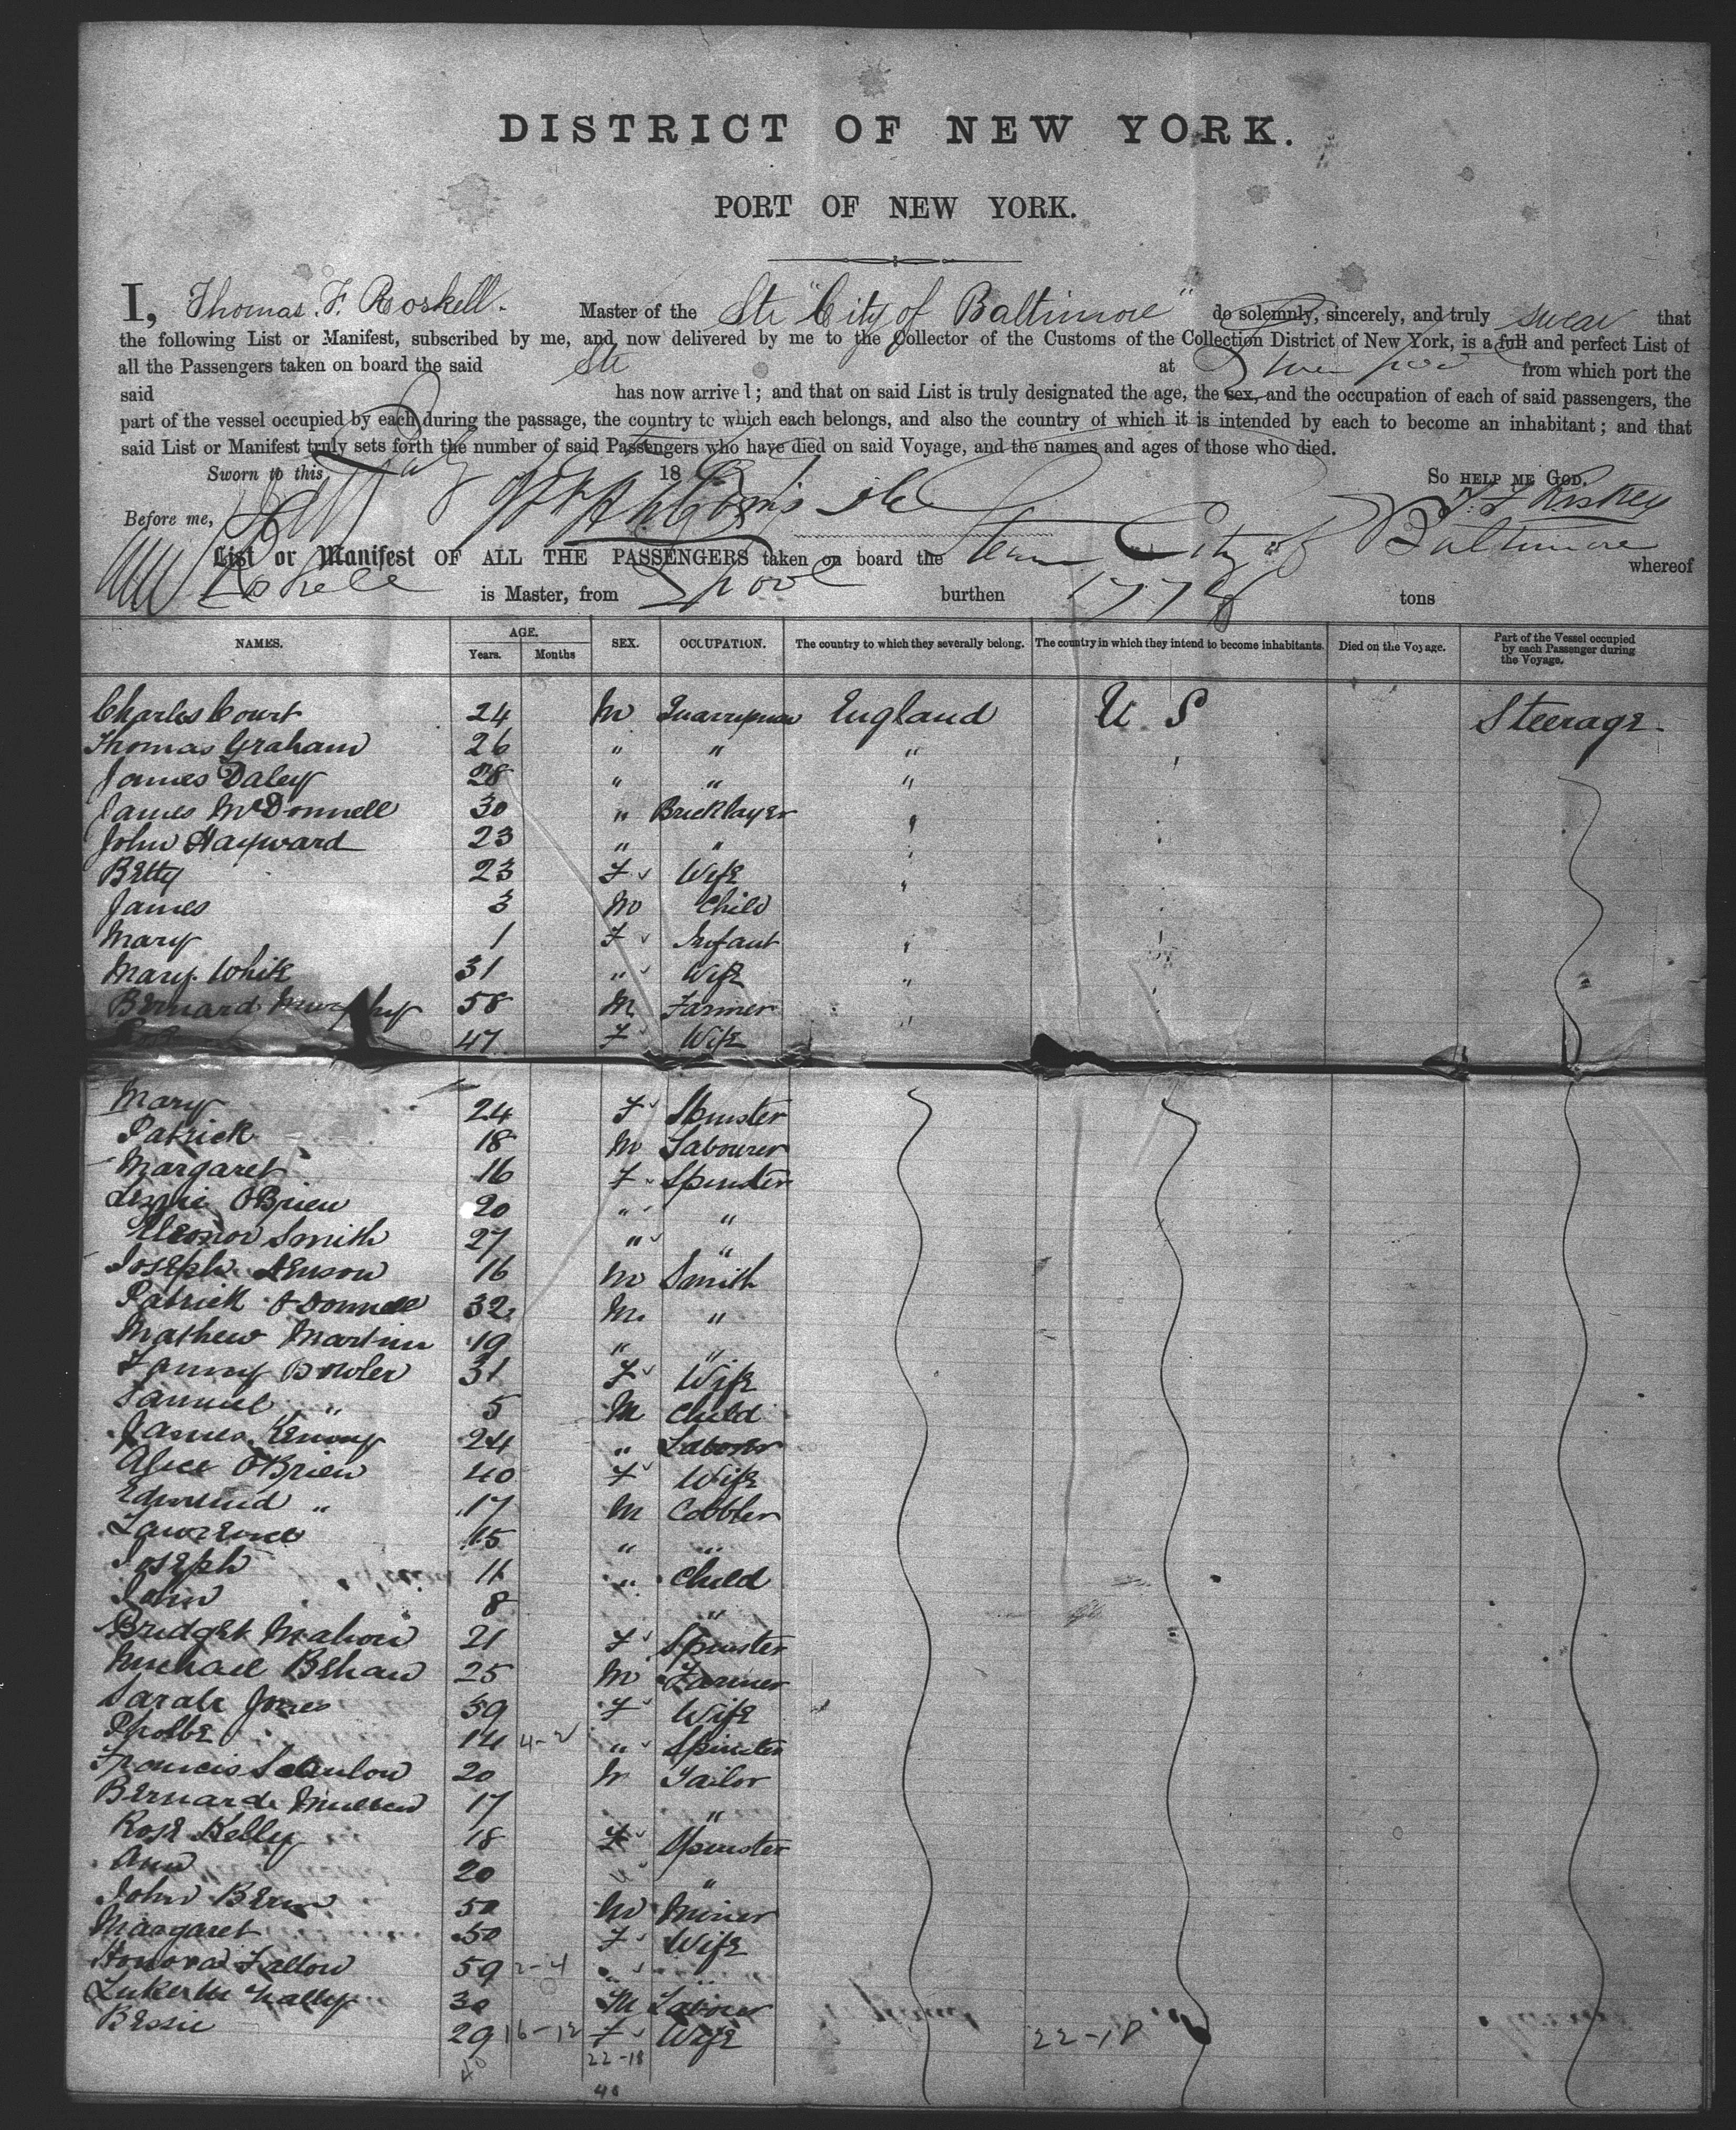 DISTRICT OF NEW YORK.
PORT OF NEW YORK.
I, Thomas. F. Roskell. Master of the Str "City of Baltimore" do solemnly, sincerely, and truly swear that
the following List or Manifest, subscribed by me, and now delivered by me to the Collector of the Customs of the Collection District of New York, is a full and perfect List of
all the Passengers taken on board the said Str at Liverpool from which port the
said has now arrived; and that on said List is truly designated the age, the sex, and the occupation of each of said passengers, the
part of the vessel occupied by each during the passage, the country to which each belongs, and also the country of which it is intended by each to become an inhabitant; and that
said List or Manifest truly sets forth the number of said Passengers who have died on said Voyage, and the names and ages of those who died.
Sworn to this 18 So HELP ME GOD.
Before me, T. F. Roskell
List or Manifest OF ALL THE PASSENGERS taken on board the Steam City of Baltimore whereof
Roskell is Master, from Lpool burthen 1774 tons
NAMES. AGE. Years. Months SEX. OCCUPATION. The country to which they severally belong. The country in which they intend to become inhabitants. Died on the Voyage. Part of the Vessel occupied by each Passenger during the Voyage.
Charles Court 24 M Quarryman England U S Steerage
Thomas Graham 26 " " "
James Daley 28 " " "
James McDonnell 30 " Bricklayer "
John Hayward 23 " " "
Betty 23 F Wife "
James 3 M Child
Mary 1 F Infant "
Mary White 31 " Wife "
Bernard Murphy 58 M Farmer "
47 F Wife
Mary 24 F Spinster
Patrick 18 M Labourer
Margaret 16 F Spinster
Lizzie O'Brien 20 " "
Eleonor Smith 27 " "
Joseph Henson 16 M Smith
Patrick O'Donnell 32 M "
Mathew Martin 19 " "
Fanny Bowler 31 F Wife
Samuel " 5 M Child
James Kenny 24 " Laborer
Alice O'Brien 40 F Wife
Edmund " 17 M Cobbler
Lawrence 15 " "
Joseph 11 " Child
John 8 "
Bridget Mahon 21 F Spinster
Michael Behan 25 M Farmer
Sarah Jones 39 F Wife
Pholbe 14 4-2 " Spinster
Francis Scanlon 20 M Tailor
Bernard Mullen 17 "
Rose Kelly 18 F Spinster
Ann 20 " "
John Bern 50 M Miner
Margaret 50 F Wife
Honora Fallon 59 2-4 " "
Luke 30 M Labourer
Bessie 29 16-12 F Wife 22-18
40 22-18
40